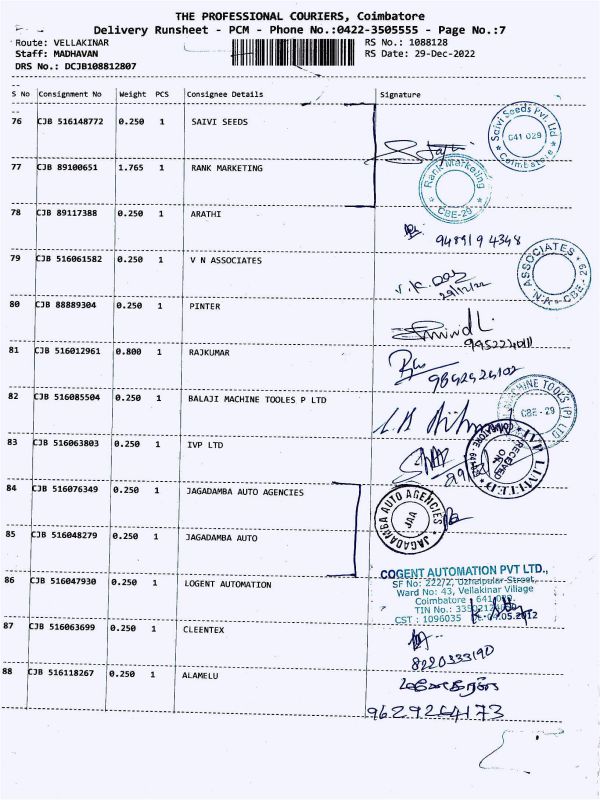 THE PROFESSIONAL COURIERS, Coimbatore
Delivery Runsheet - PCM - Phone No.:0422-3505555 - Page No.:7
Route: VELLAKINAR
RS No.: 1088128
Staff: MADHAVAN
RS Date: 29-Dec-2022
DRS No.: DCJB108812807
S No Consignment No Weight PCS Consignee Details Signature
76 CJB 516148772 0.250 1 SAIVI SEEDS
Saivi Seeds Pvt. Ltd
641 029
Coimbatore
77 CJB 89100651 1.765 1 RANK MARKETING
Rank Marketing
CBE-29
78 CJB 89117388 0.250 1 ARATHI
94891 9 4348
79 CJB 516061582 0.250 1 V N ASSOCIATES
29/12/22
ASSOCIATES
CBE-29
80 CJB 88889304 0.250 1 PINTER
81 CJB 516012961 0.800 1 RAJKUMAR
82 CJB 516085504 0.250 1 BALAJI MACHINE TOOLES P LTD
MACHINE TOOLS (P) LTD
CBE - 29
83 CJB 516063803 0.250 1 IVP LTD
IVP LIMITED
RECEIVED
84 CJB 516076349 0.250 1 JAGADAMBA AUTO AGENCIES
JAGADAMBA AUTO AGENCIES
JAA
85 CJB 516048279 0.250 1 JAGADAMBA AUTO
86 CJB 516047930 0.250 1 LOGENT AUTOMATION
COGENT AUTOMATION PVT LTD.,
SF No: 222/2, Uzhaipalar Street,
Ward No: 43, Vellakinar Village
Coimbatore - 641 029.
TIN No.:
CST : 1096035
87 CJB 516063699 0.250 1 CLEENTEX
8220333190
88 CJB 516118267 0.250 1 ALAMELU
9629264173